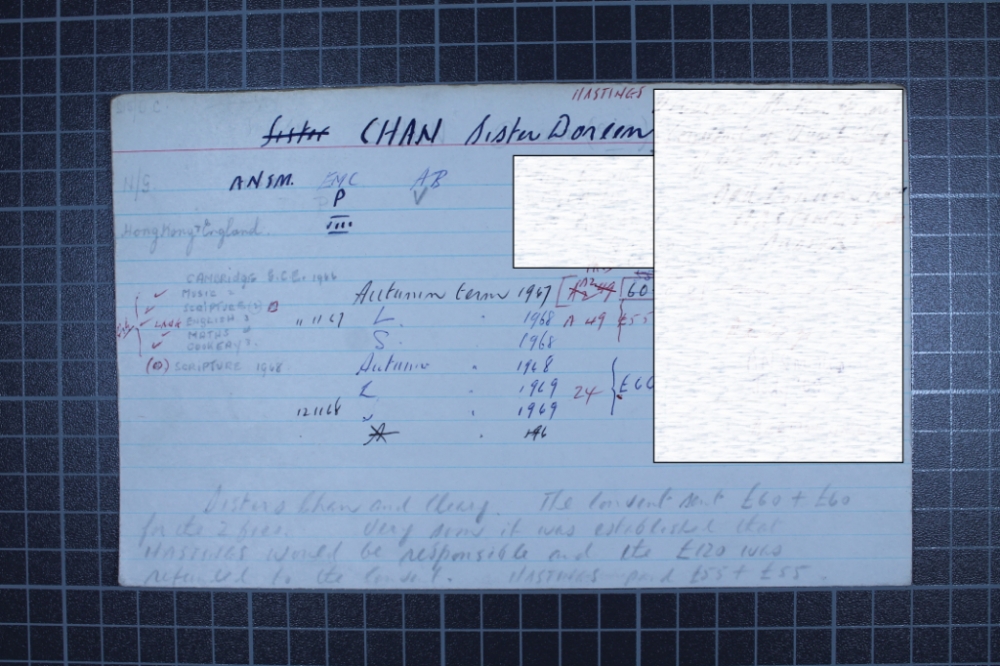 HASTINGS
Sister CHAN Sister Doreen
N/S. ANSM. EMC AB
P
III
Hong Kong England.
CAMBRIDGE G.C.E. 1966
MUSIC 2
SCRIPTURE
LANG ENGLISH 3
MATHS
COOKERY
SCRIPTURE 1968
Autumn term 1967 60
" 11 67 L. 1968 A 49 £55
S. 1968
Autumn " 1968
L " 1969 24 £60
12 11 68 " 1969
A " 196
Sisters Chan and Cleary. The Convent sent £60 + £60
for the 2 fees. Very soon it was established that
HASTINGS would be responsible and the £120 was
refunded to the Convent. HASTINGS paid £55 + £55.